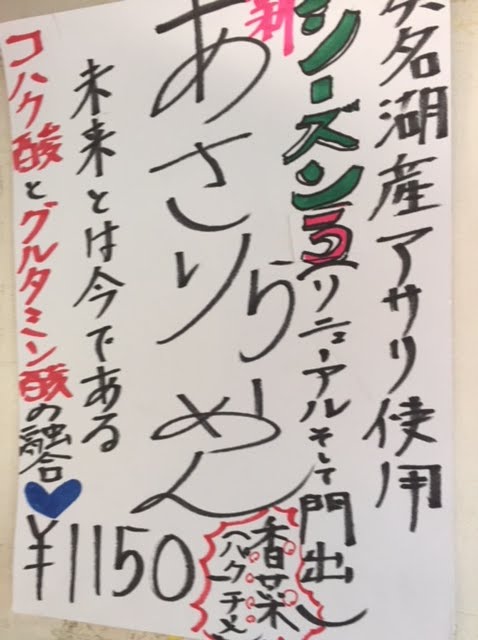 浜名湖産アサリ使用
新シーズン5(リニューアルそして門出)
あさりらーめん
未来とは今である
コハク酸とグルタミン酸の融合
¥1150
香菜
(パクチー)